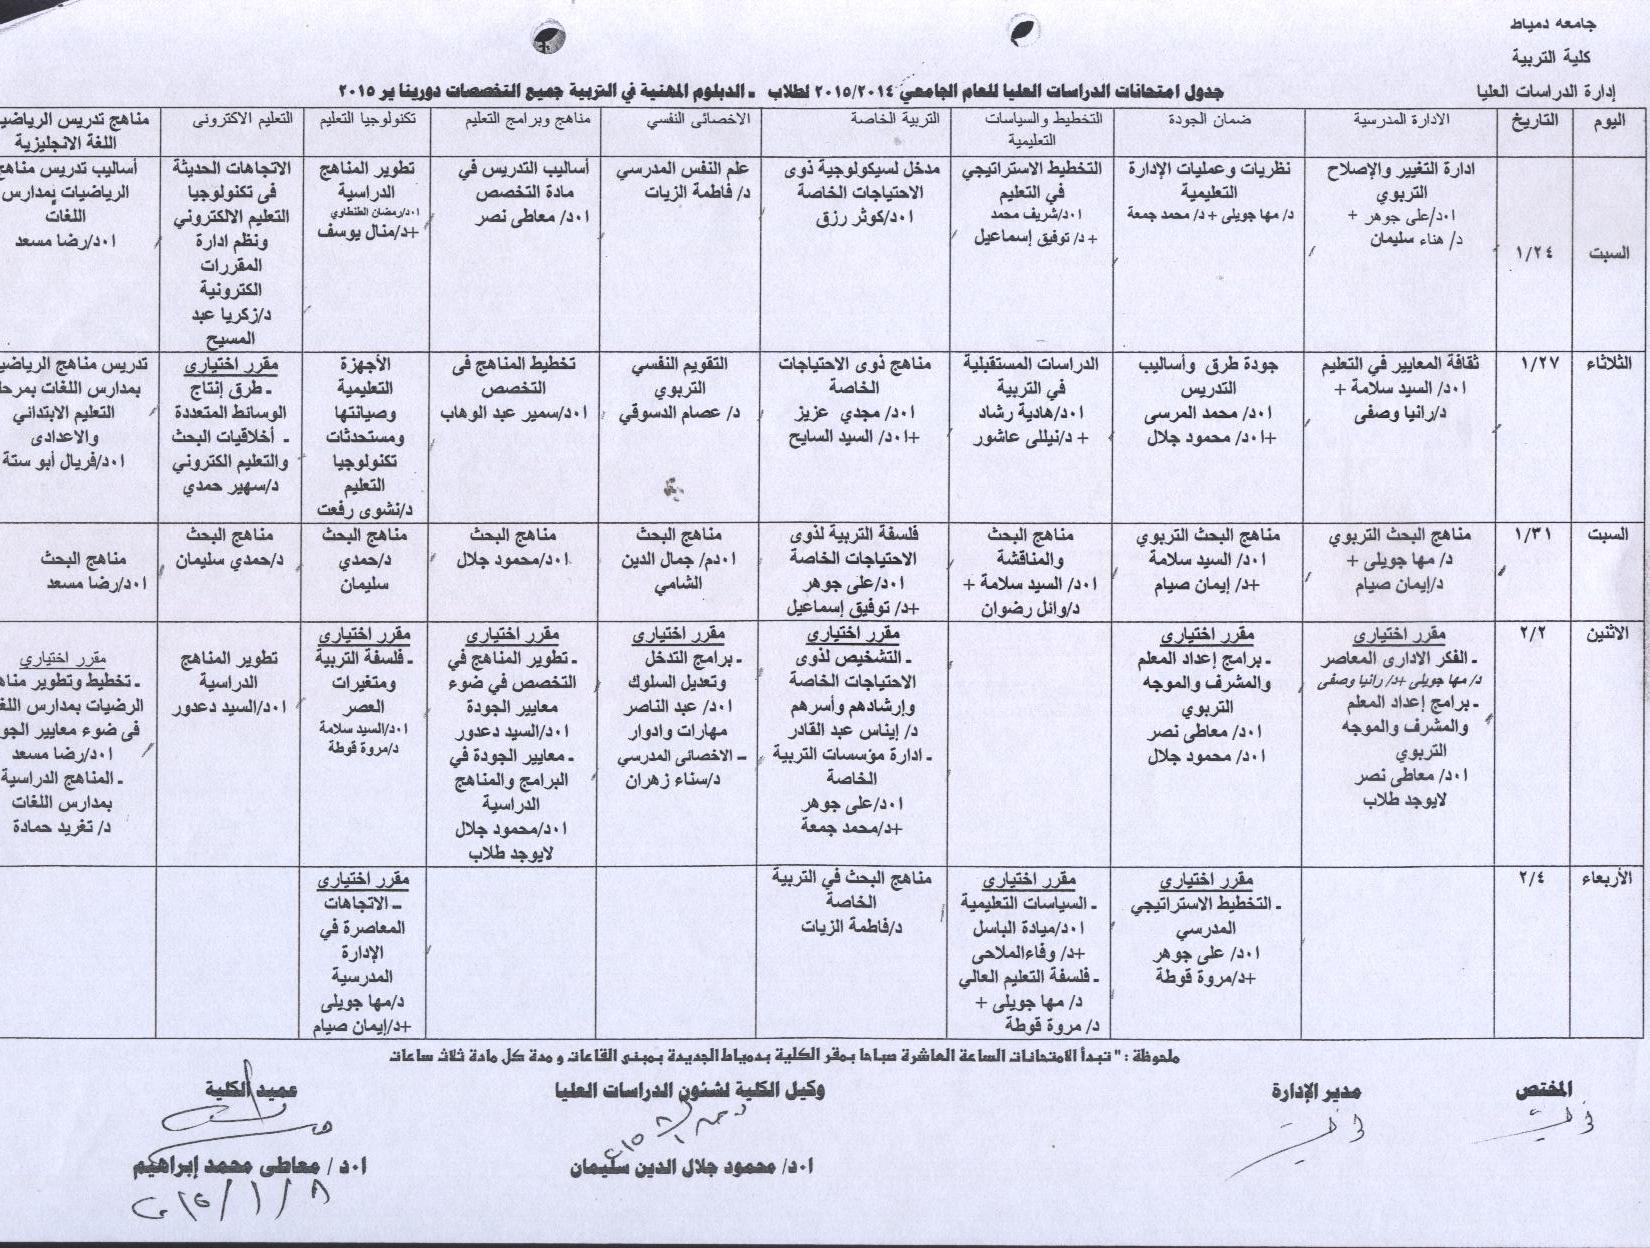 جامعه دمياط
كلية التربية
إدارة الدراسات العليا
جدول امتحانات الدراسات العليا للعام الجامعي ٢٠١٥/٢٠١٤ لطلاب ـ الدبلوم المهنية في التربية جميع التخصصات دوريناير ٢٠١٥
اليوم
التاريخ
الادارة المدرسية
ضمان الجودة
التخطيط والسياسات
التعليمية
التربية الخاصة
الاخصائى النفسي
مناهج وبرامج التعليم
تكنولوجيا التعليم
التعليم الاكترونى
مناهج تدريس الرياضي
اللغة الانجليزية
السبت
١/٢٤
ادارة التغيير والإصلاح
التربوي
ا٠د/على جوهر +
د/ هناء سليمان
نظريات وعمليات الإدارة
التعليمية
د/ مها جويلى +د/ محمد جمعة
التخطيط الاستراتيجي
في التعليم
ا٠د/شريف محمد
+ د/ توفيق إسماعيل
مدخل لسيكولوجية ذوى
الاحتياجات الخاصة
ا٠د/كوثر رزق
علم النفس المدرسي
د/ فاطمة الزيات
أساليب التدريس في
مادة التخصص
ا٠د/ معاطى نصر
تطوير المناهج
الدراسية
ا٠د/رمضان الطنطاوي
+د/منال يوسف
الاتجاهات الحديثة
فى تكنولوجيا
التعليم الالكتروني
ونظم ادارة
المقررات
الكترونية
د/زكريا عبد
المسيح
أساليب تدريس مناهج
الرياضيات بمدارس
اللغات
ا٠د/رضا مسعد
الثلاثاء
١/٢٧
ثقافة المعايير في التعليم
ا٠د/ السيد سلامة +
د/رانيا وصفى
جودة طرق وأساليب
التدريس
ا٠د/ محمد المرسى
+ا٠د/ محمود جلال
الدراسات المستقبلية
في التربية
ا٠د/هادية رشاد
+ د/نيللى عاشور
مناهج ذوى الاحتياجات
الخاصة
ا٠د/ مجدي عزيز
+ا٠د/ السيد السايح
التقويم النفسي
التربوي
د/ عصام الدسوقي
تخطيط المناهج فى
التخصص
ا٠د/سمير عبد الوهاب
الأجهزة
التعليمية
وصيانتها
ومستحدثات
تكنولوجيا
التعليم
د/نشوى رفعت
مقرر اختيارى
ـ طرق إنتاج
الوسائط المتعددة
ـ أخلاقيات البحث
والتعليم الكتروني
د/سهير حمدي
تدريس مناهج الرياضي
بمدارس اللغات بمرحل
التعليم الابتدائي
والاعدادى
ا٠د/فريال أبو ستة
السبت
١/٣١
مناهج البحث التربوي
د/ مها جويلى +
د/إيمان صيام
مناهج البحث التربوي
ا٠د/ السيد سلامة
+د/ إيمان صيام
مناهج البحث
والمناقشة
ا٠د/ السيد سلامة +
د/وائل رضوان
فلسفة التربية لذوى
الاحتياجات الخاصة
ا٠د/على جوهر
+د/ توفيق إسماعيل
مناهج البحث
ا٠دم/ جمال الدين
الشامي
مناهج البحث
ا٠د/محمود جلال
مناهج البحث
د/حمدي
سليمان
مناهج البحث
د/حمدي سليمان
مناهج البحث
ا٠د/رضا مسعد
الاثنين
٢/٢
مقرر اختياري
ـ الفكر الادارى المعاصر
د/ مها جويلى +د/ رانيا وصفى
ـ برامج إعداد المعلم
والمشرف والموجه
التربوي
ا٠د/ معاطى نصر
لايوجد طلاب
مقرر اختياري
ـ برامج إعداد المعلم
والمشرف والموجه
التربوي
ا٠د/ معاطى نصر
ا٠د/ محمود جلال
مقرر اختياري
ـ التشخيص لذوى
الاحتياجات الخاصة
وإرشادهم وأسرهم
د/ إيناس عبد القادر
ـ ادارة مؤسسات التربية
الخاصة
ا٠د/على جوهر
+د/محمد جمعة
مقرر اختياري
ـ برامج التدخل
وتعديل السلوك
ا٠د/ عبد الناصر
مهارات وادوار
ـ الاخصائى المدرسي
د/سناء زهران
مقرر اختياري
ـ تطوير المناهج في
التخصص في ضوء
معايير الجودة
ا٠د/السيد دعدور
ـ معايير الجودة في
البرامج والمناهج
الدراسية
ا٠د/محمود جلال
لايوجد طلاب
مقرر اختياري
ـ فلسفة التربية
ومتغيرات
العصر
ا٠د/السيد سلامة
د/مروة قوطة
تطوير المناهج
الدراسية
ا٠د/السيد دعدور
مقرر اختياري
ـ تخطيط وتطوير مناه
الرضيات بمدارس اللغ
فى ضوء معايير الجو
ا٠د/رضا مسعد
ـ المناهج الدراسية
بمدارس اللغات
د/ تغريد حمادة
الأربعاء
٢/٤
مقرر اختياري
ـ التخطيط الاستراتيجي
المدرسي
ا٠د/ على جوهر
+د/مروة قوطة
مقرر اختياري
ـ السياسات التعليمية
ا٠د/ميادة الباسل
+د/ وفاءالملاحى
ـ فلسفة التعليم العالي
د/ مها جويلى +
د/ مروة قوطة
مناهج البحث في التربية
الخاصة
د/فاطمة الزيات
مقرر اختيارى
ـ الاتجاهات
المعاصرة في
الإدارة
المدرسية
د/مها جويلى
+د/إيمان صيام
ملحوظة : " تبدأ الامتحانات الساعة العاشرة صباحا بمقر الكلية بدمياط الجديدة بمبنى القاعات و مدة كل مادة ثلاث ساعات
المختص
مدير الإدارة
وكيل الكلية لشئون الدراسات العليا
عميد الكلية
ا٠د/ محمود جلال الدين سليمان
ا٠د / معاطى محمد إبراهيم
٢٠١٥/١/٨